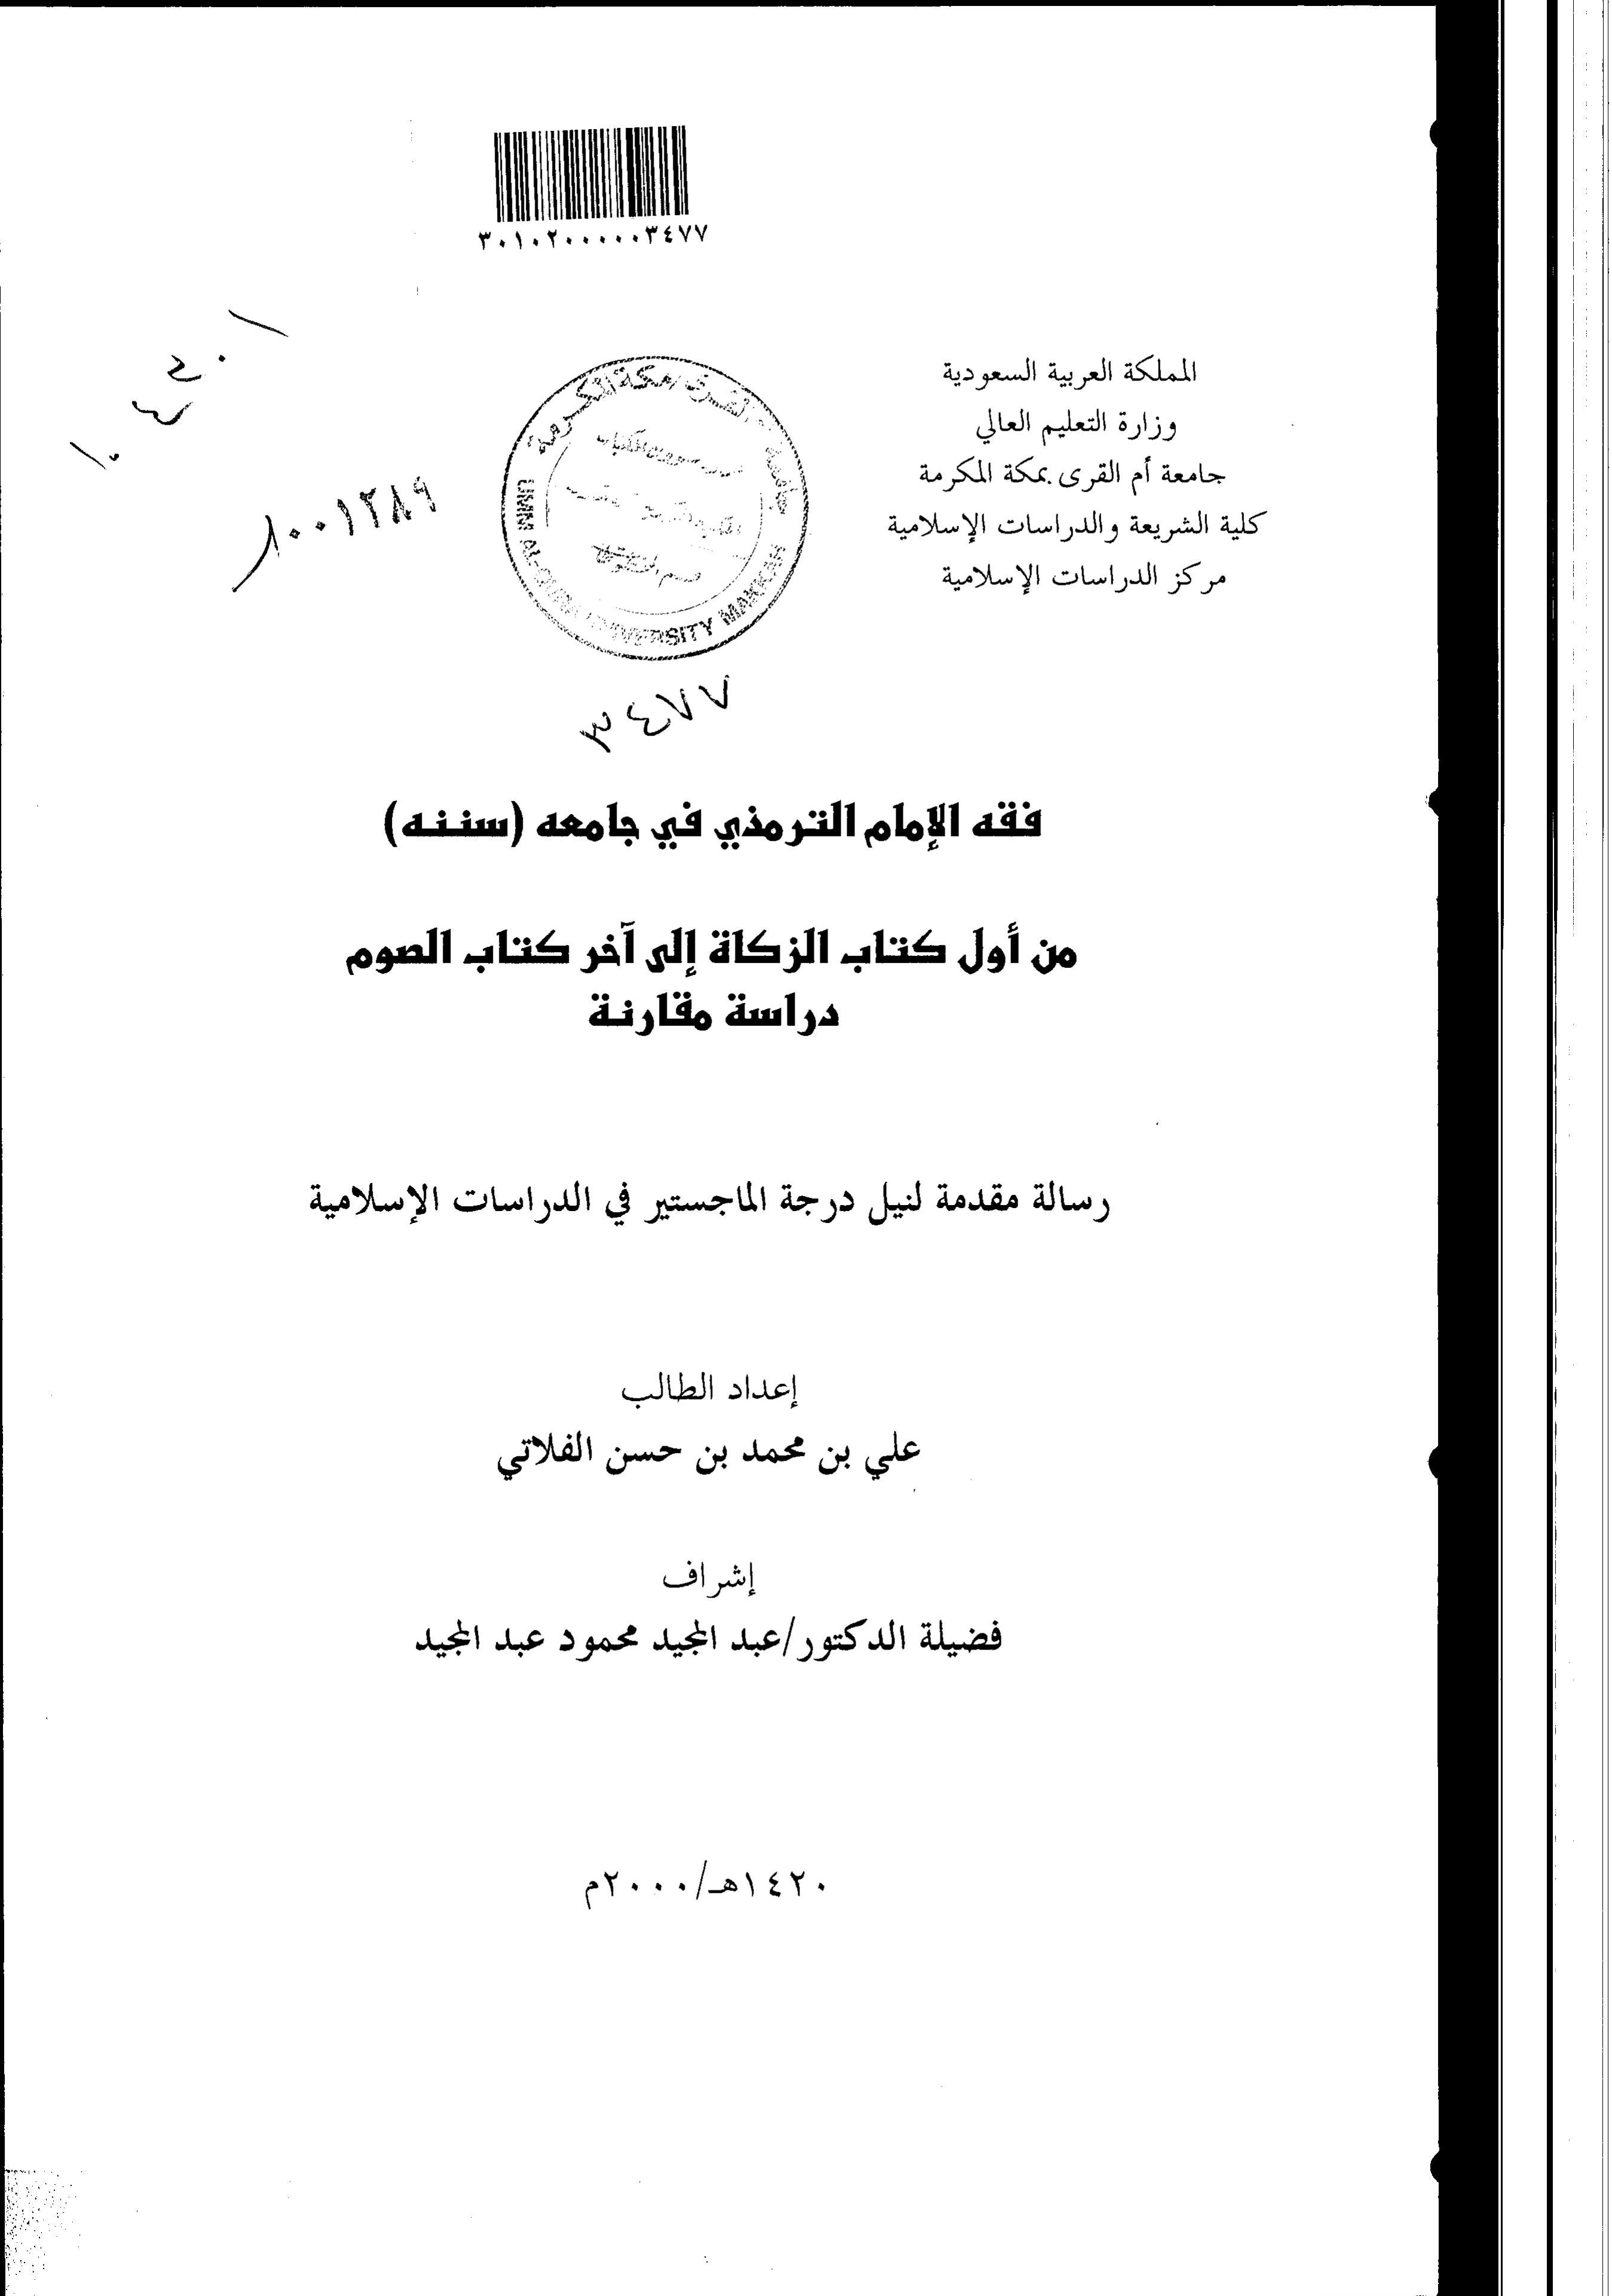 ٣٠١٠٢٠٠٠٠٠٣٤٧٧
المملكة العربية السعودية
وزارة التعليم العالي
جامعة أم القرى بمكة المكرمة
كلية الشريعة والدراسات الإسلامية
مركز الدراسات الإسلامية
جامعة أم القرى بمكة المكرمة
UMM AL-QURA UNIVERSITY MAKKAH
١٠٠١٢٨٩
٣٤٧٧
فقه الإمام الترمذي في جامعه (سننه)
من أول كتاب الزكاة إلى آخر كتاب الصوم
دراسة مقارنة
رسالة مقدمة لنيل درجة الماجستير في الدراسات الإسلامية
إعداد الطالب
علي بن محمد بن حسن الفلاتي
إشراف
فضيلة الدكتور/عبد المجيد محمود عبد المجيد
١٤٢٠هـ/٢٠٠٠م